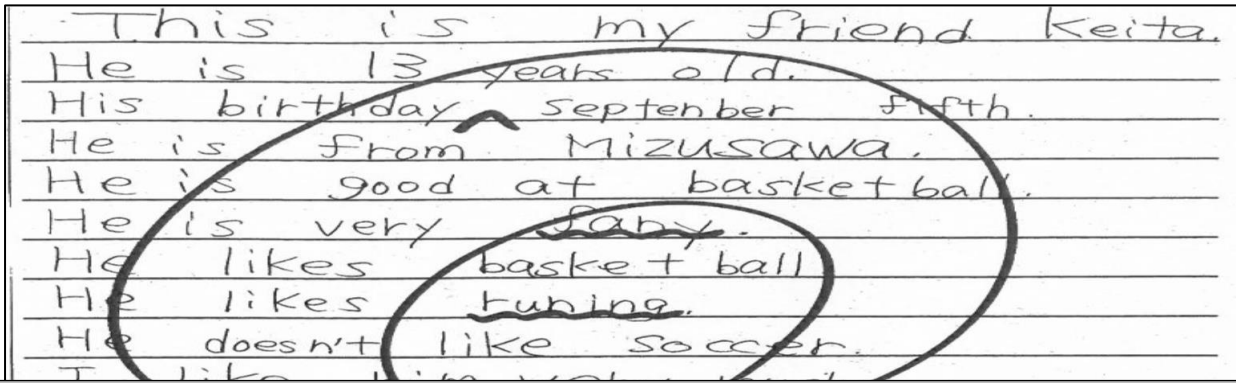 This is my friend Keita.
He is 13 years old.
His birthday september fifth.
He is from Mizusawa.
He is good at basketball.
He is very fany.
He likes basket ball
He likes runing.
He doesn't like soccer.
I like him very